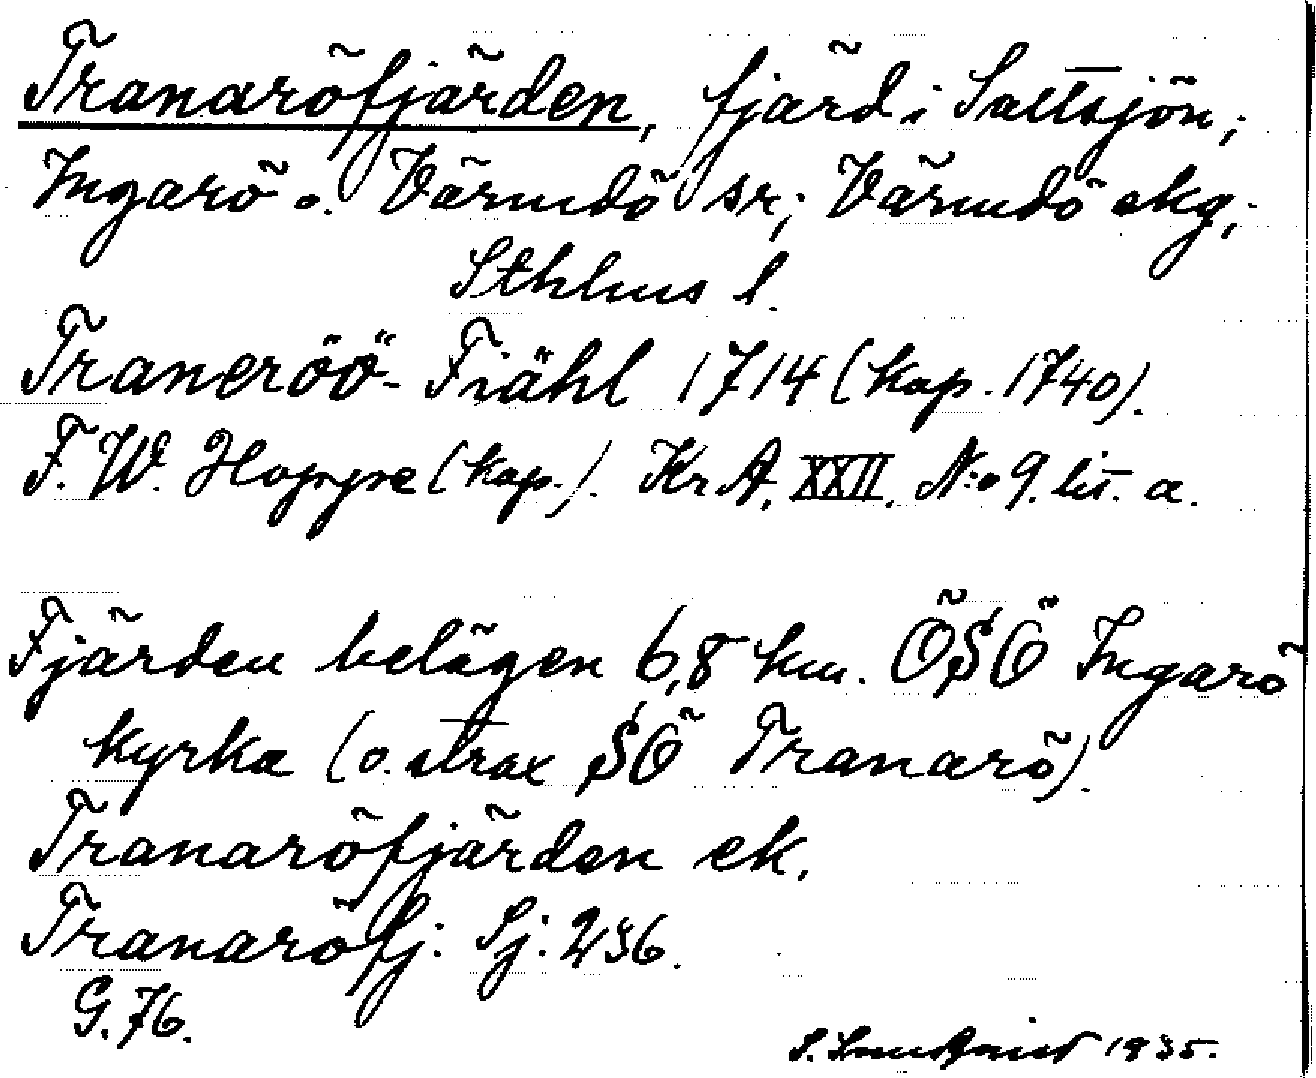 Tranaröfjärden, fjärd i Saltsjön;
Ingarö o. Värmdö sr; Värmdö skg;
Sthlms l.
Traneröö-Fiähl 1714 (kop. 1740).
F. W. Hoppe (kop.). Kr A. XXII. N:o 9. lit. a.
Fjärden belägen 6,8 km. ÖSÖ Ingarö
kyrka (o. strax SÖ Tranarö).
Tranaröfjärden ek.
Tranaröfj: Sj. 236.
G. 76.
S. 1935.